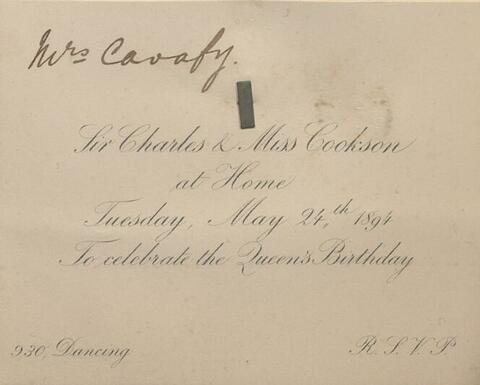 Mrs Cavafy.
Sir Charles & Miss Cookson
at Home
Tuesday, May 24,th 1894
To celebrate the Queen's Birthday
9.30, Dancing
R. S. V. P